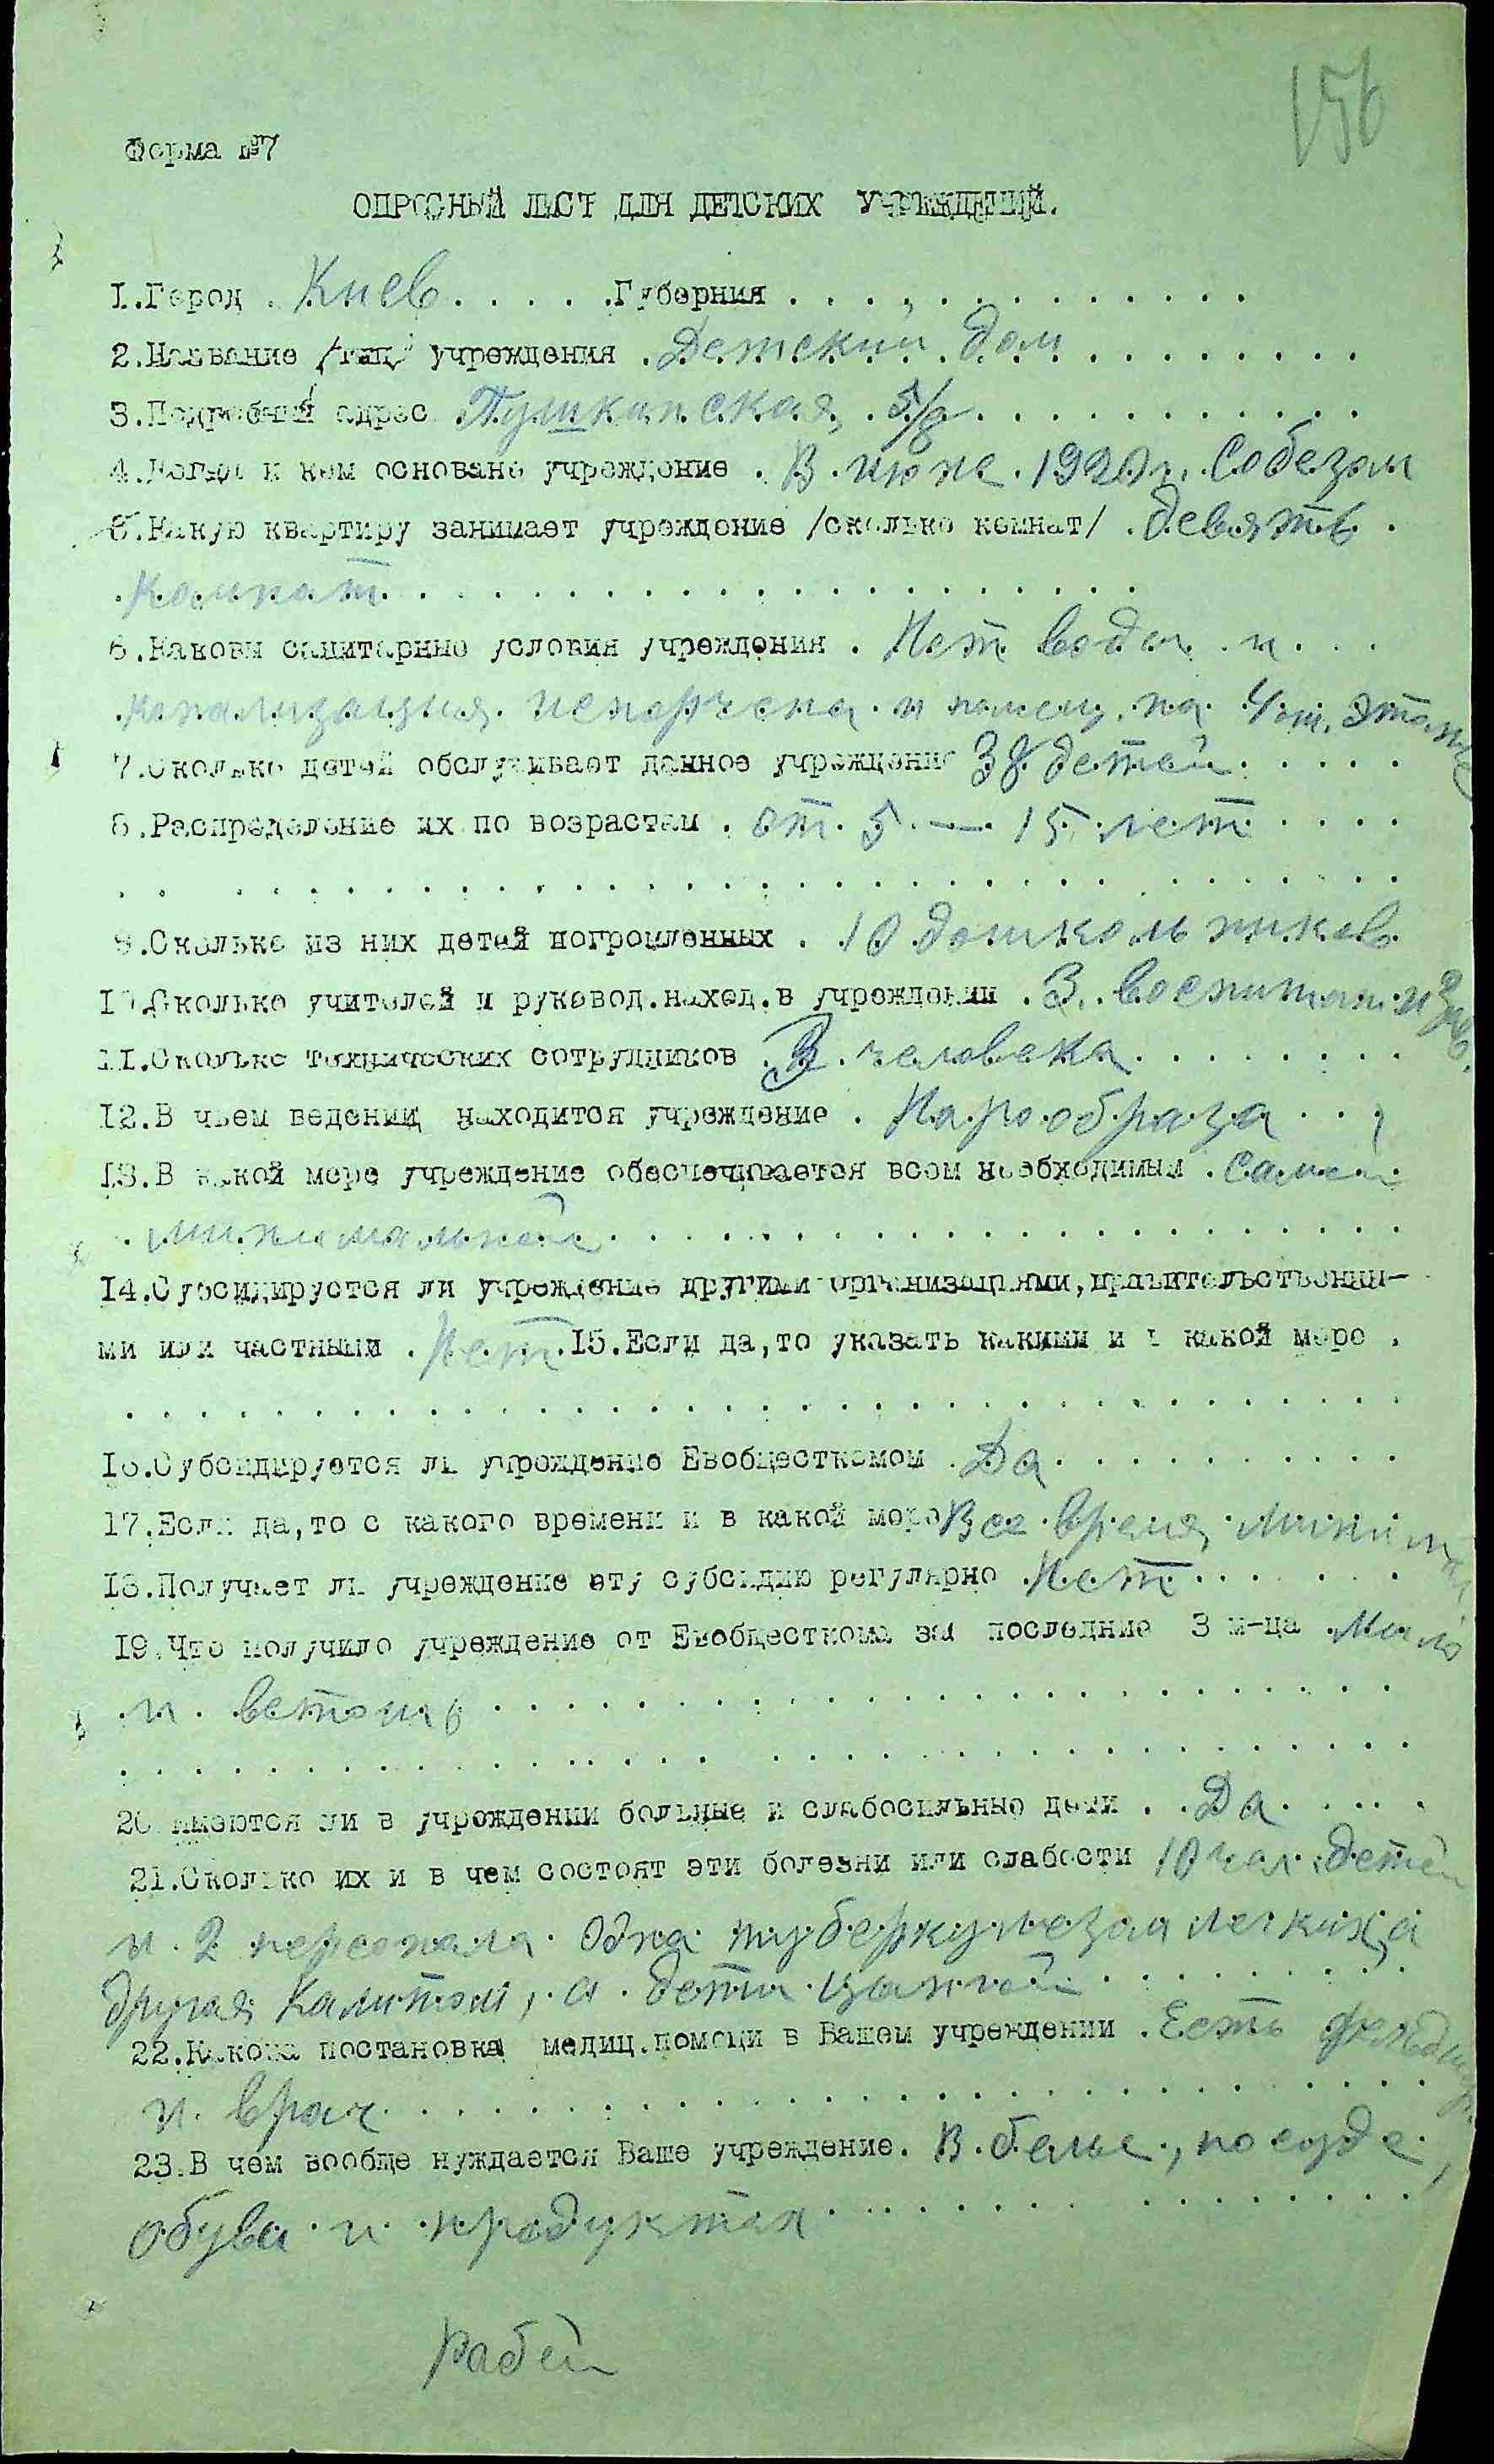 156
Форма №7
ОПРОСНЫЙ ЛИСТ ДЛЯ ДЕТСКИХ УЧРЕЖДЕНИЙ.
1.Город . Киев . . . . .Губерния . . . . . . . . . . . . .
2.Название /тип/ учреждения . Детский дом . . . . . . . . . .
3.Подробный адрес Пушкинская, 5/8 . . . . . . . . . . . .
4.Когда и кем основано учреждение . В июне 1920 г. Собезом
5.Какую квартиру занимает учреждение /сколько комнат/ . девять .
комнат . . . . . . . . . . . . . . . . . .
6.Каковы санитарные условия учреждения . Нет воды и . . .
канализация испорчена и помещ. на 4 ом. этаже
7.Сколько детей обслуживает данное учреждение 38 детей . . . . .
8.Распределение их по возрастам . от 5 — 15 лет . . . .
. . . . . . . . . . . . . . . . . . . . . . .
9.Сколько из них детей погромленных . 10 дошкольников
10.Сколько учителей и руковод.наход.в учреждении . 3. воспитат. и
11.Сколько технических сотрудников . 3 человека . . . . . . . .
12.В чьем ведении находится учреждение . Наробраза . . .
13.В какой мере учреждение обеспечивается всем необходимым . самой
. минимальной . . . . . . . . . . . . . . . .
14.Субсидируется ли учреждение другими организациями,правительственны-
ми или частными . Нет .15.Если да,то указать какими и в какой мере .
. . . . . . . . . . . . . . . . . . . . . . .
16.Субсидируется ли учреждение Евобщесткомом . Да . . . . . . . . . .
17.Если да,то с какого времени и в какой мере Все время, миним
18.Получает ли учреждение эту субсидию регулярно . Нет . . . . . .
19.Что получило учреждение от Евобщесткома за последние 3 м-ца . Мыло
и ветошь . . . . . . . . . . . . . . . . . .
. . . . . . . . . . . . . . . . . . . . . . .
20.Имеются ли в учреждении больные и слабосильные дети . . Да . . . .
21.Сколько их и в чем состоят эти болезни или слабости 10 чел. детей
и 2 персонала. Одна туберкулезом легких, а
другая Калитом, а дети цынгой . . . . . . .
22.Какова постановка медиц.помощи в Вашем учреждении . Есть фельдшер
и врач . . . . . . . . . . . . . . . . . . .
23.В чем вообще нуждается Ваше учреждение. В белье, посуде,
обуви и продуктах . . . . . . . . . . .